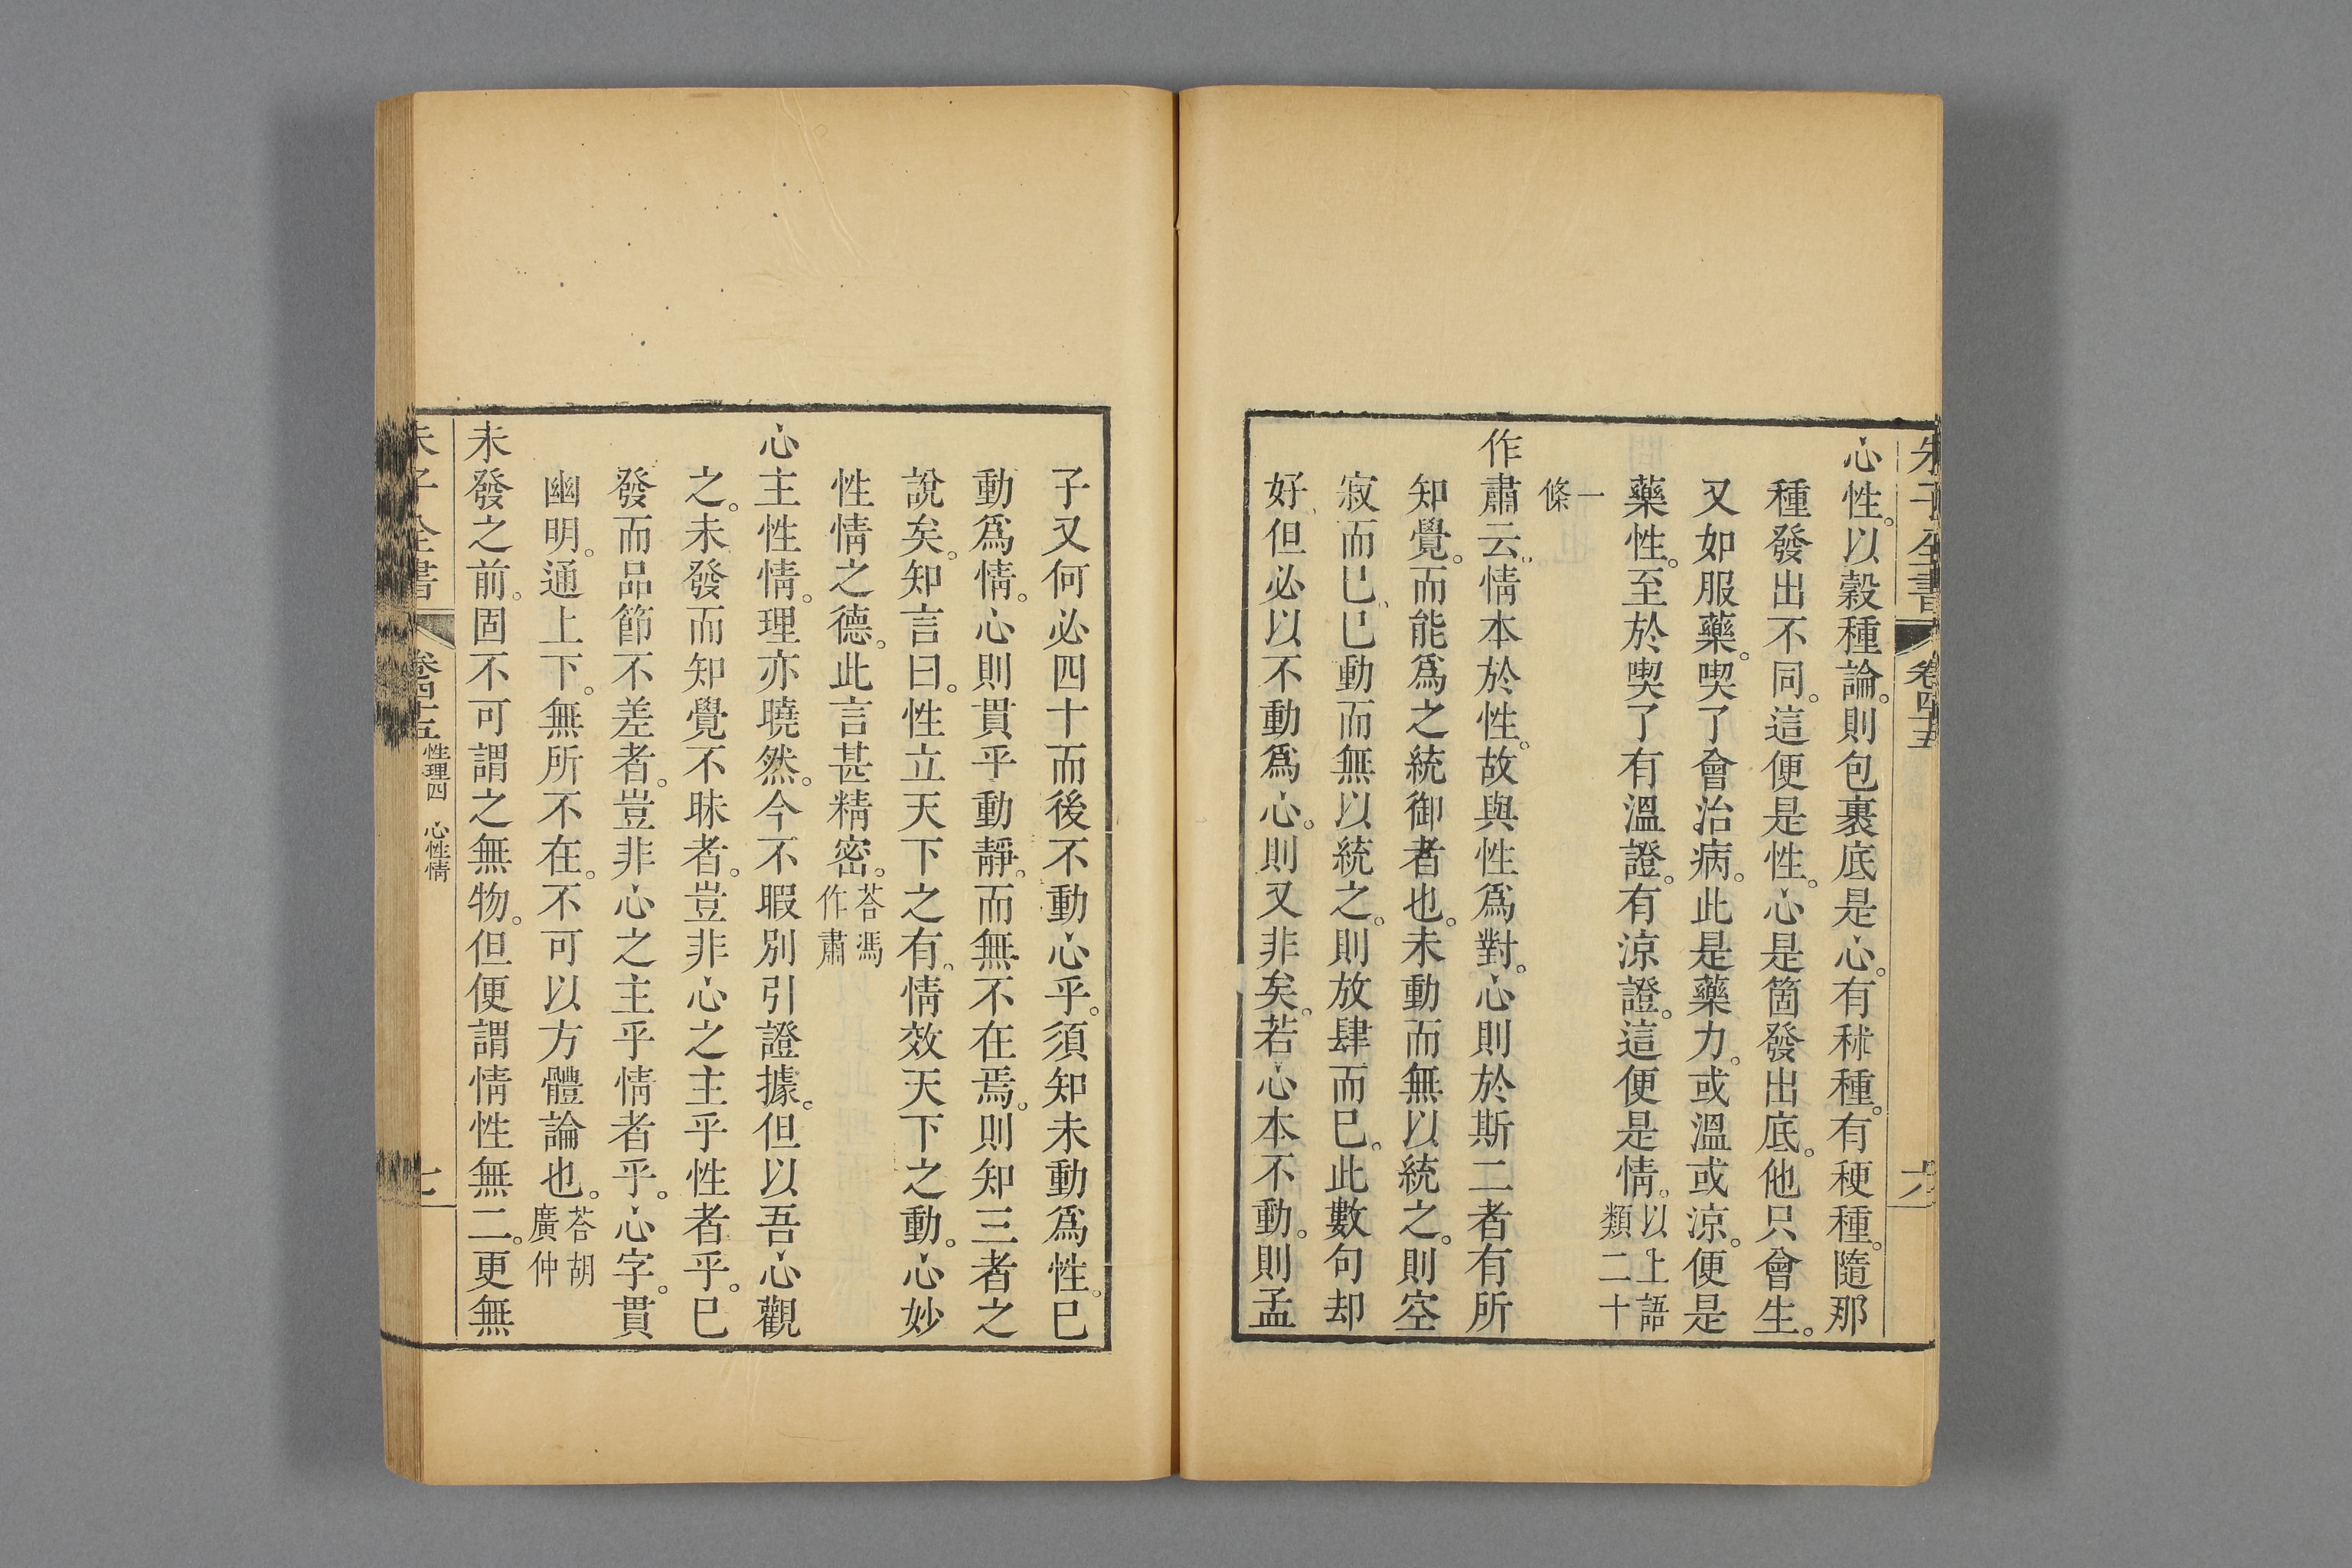 朱子全書 卷四十五 六
心性。以穀種論。則包裹底是心。有秫種。有稉種。隨那
種發出不同。這便是性。心是箇發出底。他只會生。
又如服藥。喫了會治病。此是藥力。或溫或涼。便是
藥性。至於喫了有溫證。有涼證。這便是情。以上語類二十
一條
作肅云、情本於性。故與性爲對。心則於斯二者有所
知覺。而能爲之統御者也。未動而無以統之。則空
寂而已、已動而無以統之。則放肆而已。此數句却
好、但必以不動爲心。則又非矣。若心本不動。則孟
子又何必四十而後不動心乎。須知未動爲性。已
動爲情。心則貫乎動靜。而無不在焉。則知三者之
說矣。知言曰。性立天下之有。情效天下之動。心妙
性情之德。此言甚精密。荅馮作肅
心主性情。理亦曉然。今不暇別引證據。但以吾心觀
之。未發而知覺不昧者。豈非心之主乎性者乎。已
發而品節不差者。豈非心之主乎情者乎。心字。貫
幽明。通上下。無所不在。不可以方體論也。荅胡廣仲
未發之前。固不可謂之無物。但便謂情性無二。更無
朱子全書 卷四十五 性理四 心性情 七